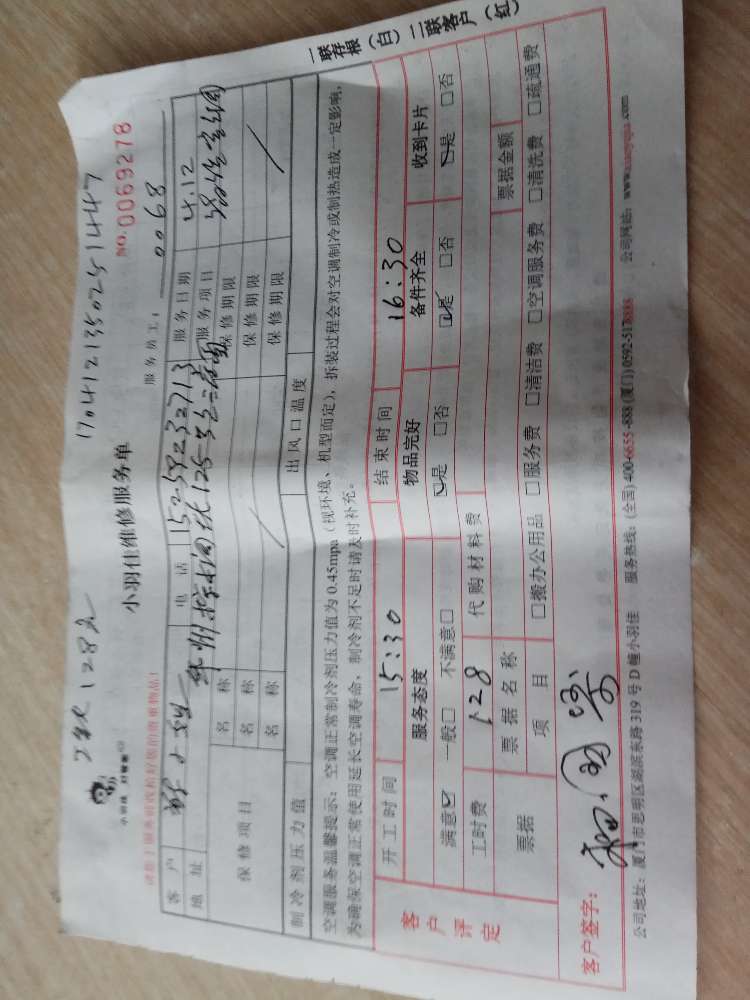 1704121350251447
128元
小羽佳维修服务单
NO.0069278
服务员工: 0068
请您于服务前收拾好您的贵重物品!
客户 电话 15258232713 服务日期 4.12
地址 服务项目
保修项目 名称 保修期限
名称 保修期限
名称 保修期限
制冷剂压力值 出风口温度
空调服务温馨提示:空调正常制冷剂压力值为0.45mpa(视环境、机型而定),拆装过程会对空调制冷或制热造成一定影响,
为确保空调正常使用延长空调寿命,制冷剂不足时请及时补充。
客户评定
开工时间 15:30 结束时间 16:30
服务态度 物品完好 备件齐全 收到卡片
满意☑ 一般□ 不满意□ ☑是 □否 ☑是 □否 ☑是 □否
工时费 128 代购材料费
票据 票据名称 票据金额
项目 □搬办公用品 □服务费 □清洁费 □空调服务费 □清洗费 □疏通费
客户签字:
公司地址:厦门市思明区湖滨东路319号D幢小羽佳 服务热线:(全国)400-6655-888 (厦门)0592-5178888 公司网站:www.xiaoyujia.com
一联存根(白)二联客户(红)